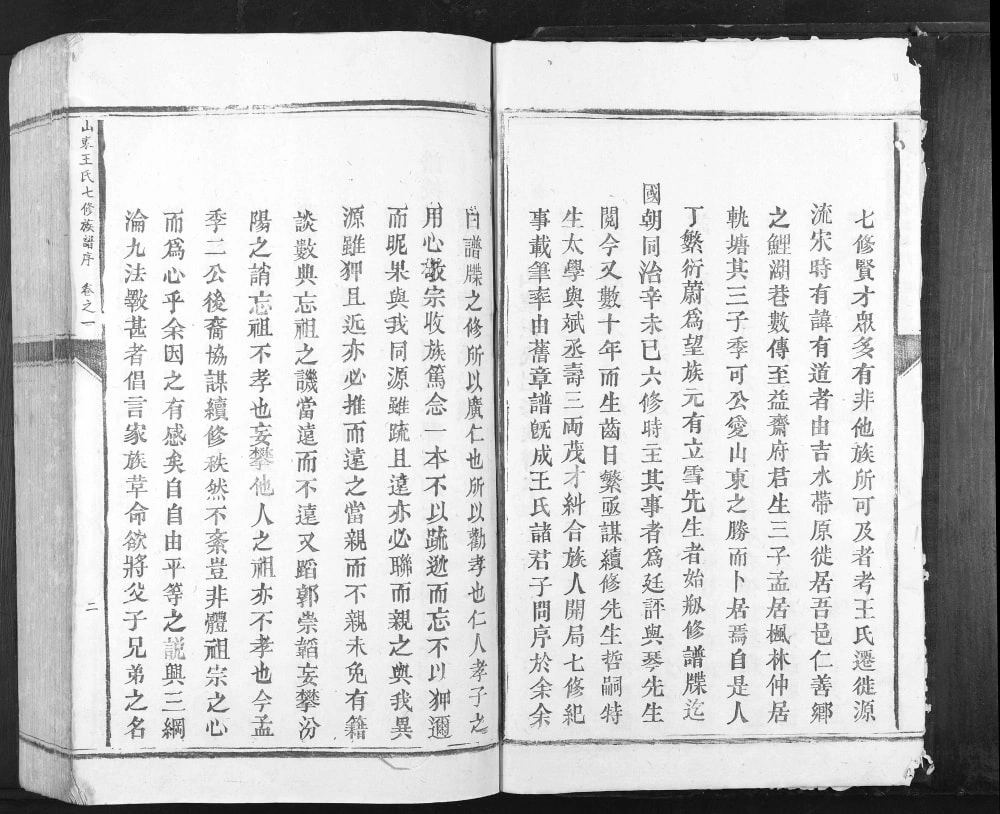 七修賢才眾多有非他族所可及者考王氏遷徙源
流宋時有諱有道者由吉水帶原徙居吾邑仁善鄉
之鯉湖巷數傳至益齋府君生三子孟居楓林仲居
軌塘其三子季可公愛山東之勝而卜居焉自是人
丁繁衍蔚爲望族元有立雪先生者始刱修譜牒迄
國朝同治辛未已六修時主其事者爲廷評與琴先生
閱今又數十年而生齒日繁亟謀續修先生哲嗣特
生太學與斌丞壽三兩茂才糾合族人開局七修紀
事載筆率由舊章譜旣成王氏諸君子問序於余余
曰譜牒之修所以廣仁也所以勸孝也仁人孝子之
用心敬宗收族篤念一本不以疏逖而忘不以狎邇
而昵果與我同源雖疏且遠亦必聯而親之與我異
源雖狎且近亦必推而遠之當親而不親未免有籍
談數典忘祖之譏當遠而不遠又蹈郭崇韜妄攀汾
陽之誚忘祖不孝也妄攀他人之祖亦不孝也今孟
季二公後裔協謀續修秩然不紊豈非體祖宗之心
而爲心乎余因之有感矣自自由平等之說興三綱
淪九法斁甚者倡言家族革命欲將父子兄弟之名
山東王氏七修族譜序 卷之一
二